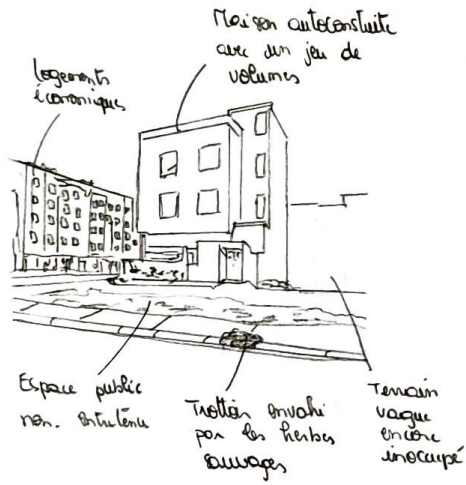 Maison autoconstruite
avec un jeu de
volumes
Logements
économiques
Espace public
non. entretenu
Trottoir envahi
par les herbes
sauvages
Terrain
vague
encore
inoccupé